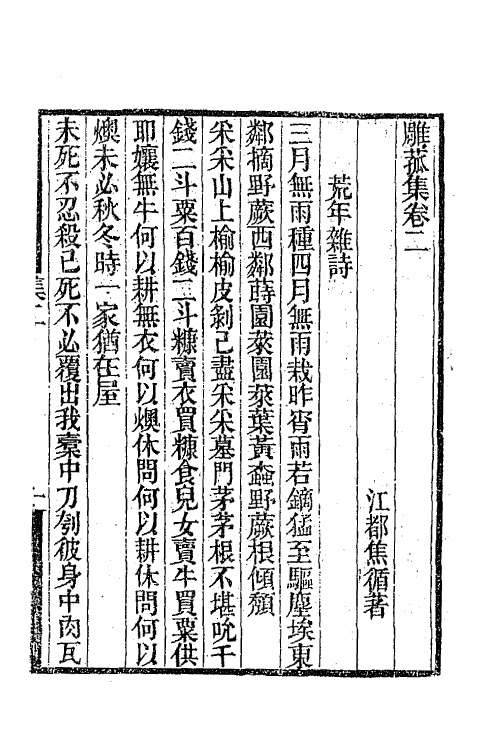 雕菰集卷二
江都焦循著
荒年雜詩
三月無雨種四月無雨栽昨宵雨若鏑猛至驅塵埃東
鄰摘野蕨西鄰蒔園萊園萊葉黃蟲野蕨根傾頽
采采山上榆榆皮剝已盡采采墓門茅茅根不堪吮千
錢二斗粟百錢二斗糠賣衣買糠食兒女賣牛買粟供
耶孃無牛何以耕無衣何以燠休問何以耕休問何以
燠未必秋冬時一家猶在屋
未死不忍殺已死不必覆出我橐中刀刳彼身中肉瓦
集二
一